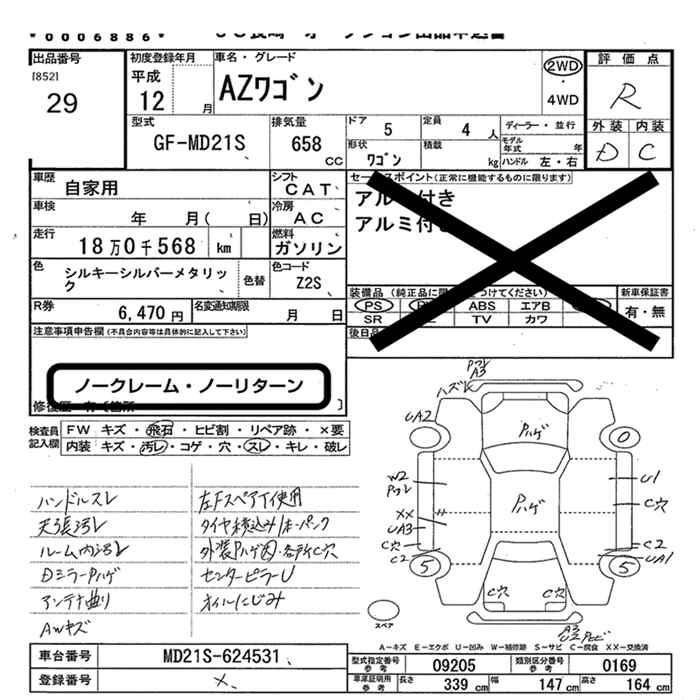 *0006886*
出品番号
[852]
29
初度登録年月
平成
12 月
車名・グレード
AZワゴン
2WD
4WD
評価点
R
外装 内装
D C
型式
GF-MD21S
排気量
658 CC
ドア 5
定員 4 人
ディーラー・並行
形状
ワゴン
積載 kg
モデル年式 年
ハンドル 左・右
車歴
自家用
シフト
CAT
車検
年 月( 日)
冷房
AC
走行
18万0千568 km
燃料
ガソリン
色
シルキーシルバーメタリック
色替
色コード
Z2S
R券
6,470 円
名変通知期限
月 日
セールスポイント(正常に機能するものに限ります)
アルミ付き
アルミ付き
装備品
PS
ABS エアB
SR TV カワ
新車保証書
有・無
注意事項申告欄(不具合内容等は具体的に記入して下さい)
ノークレーム・ノーリターン
検査員記入欄
FW キズ・飛石・ヒビ割・リペア跡・×要
内装 キズ・汚レ・コゲ・穴・スレ・キレ・破レ
ハンドルスレ
天張汚レ
ルーム内汚レ
Dミラーハゲ
アンテナ曲り
AWキズ
左FスペアT使用
タイヤ積込み1本パンク
外装Pハゲ凹・各所C穴
センターピラーU
オイルにじみ
A3
ハズレ
UA2
Pハゲ
0
W2
Pハゲ
U1
C穴
XX
UA3
C穴
C2
C2
UA1
5
5
C穴
C穴
スペア
A3
A-キズ E-エクボ U-凹み W-補修跡 S-サビ C-腐食 XX-交換済
車台番号
MD21S-624531
登録番号
×
型式指定番号
参考
09205
類別区分番号
参考
0169
車庫証明用
参考
長さ 339 cm
幅 147 cm
高さ 164 cm